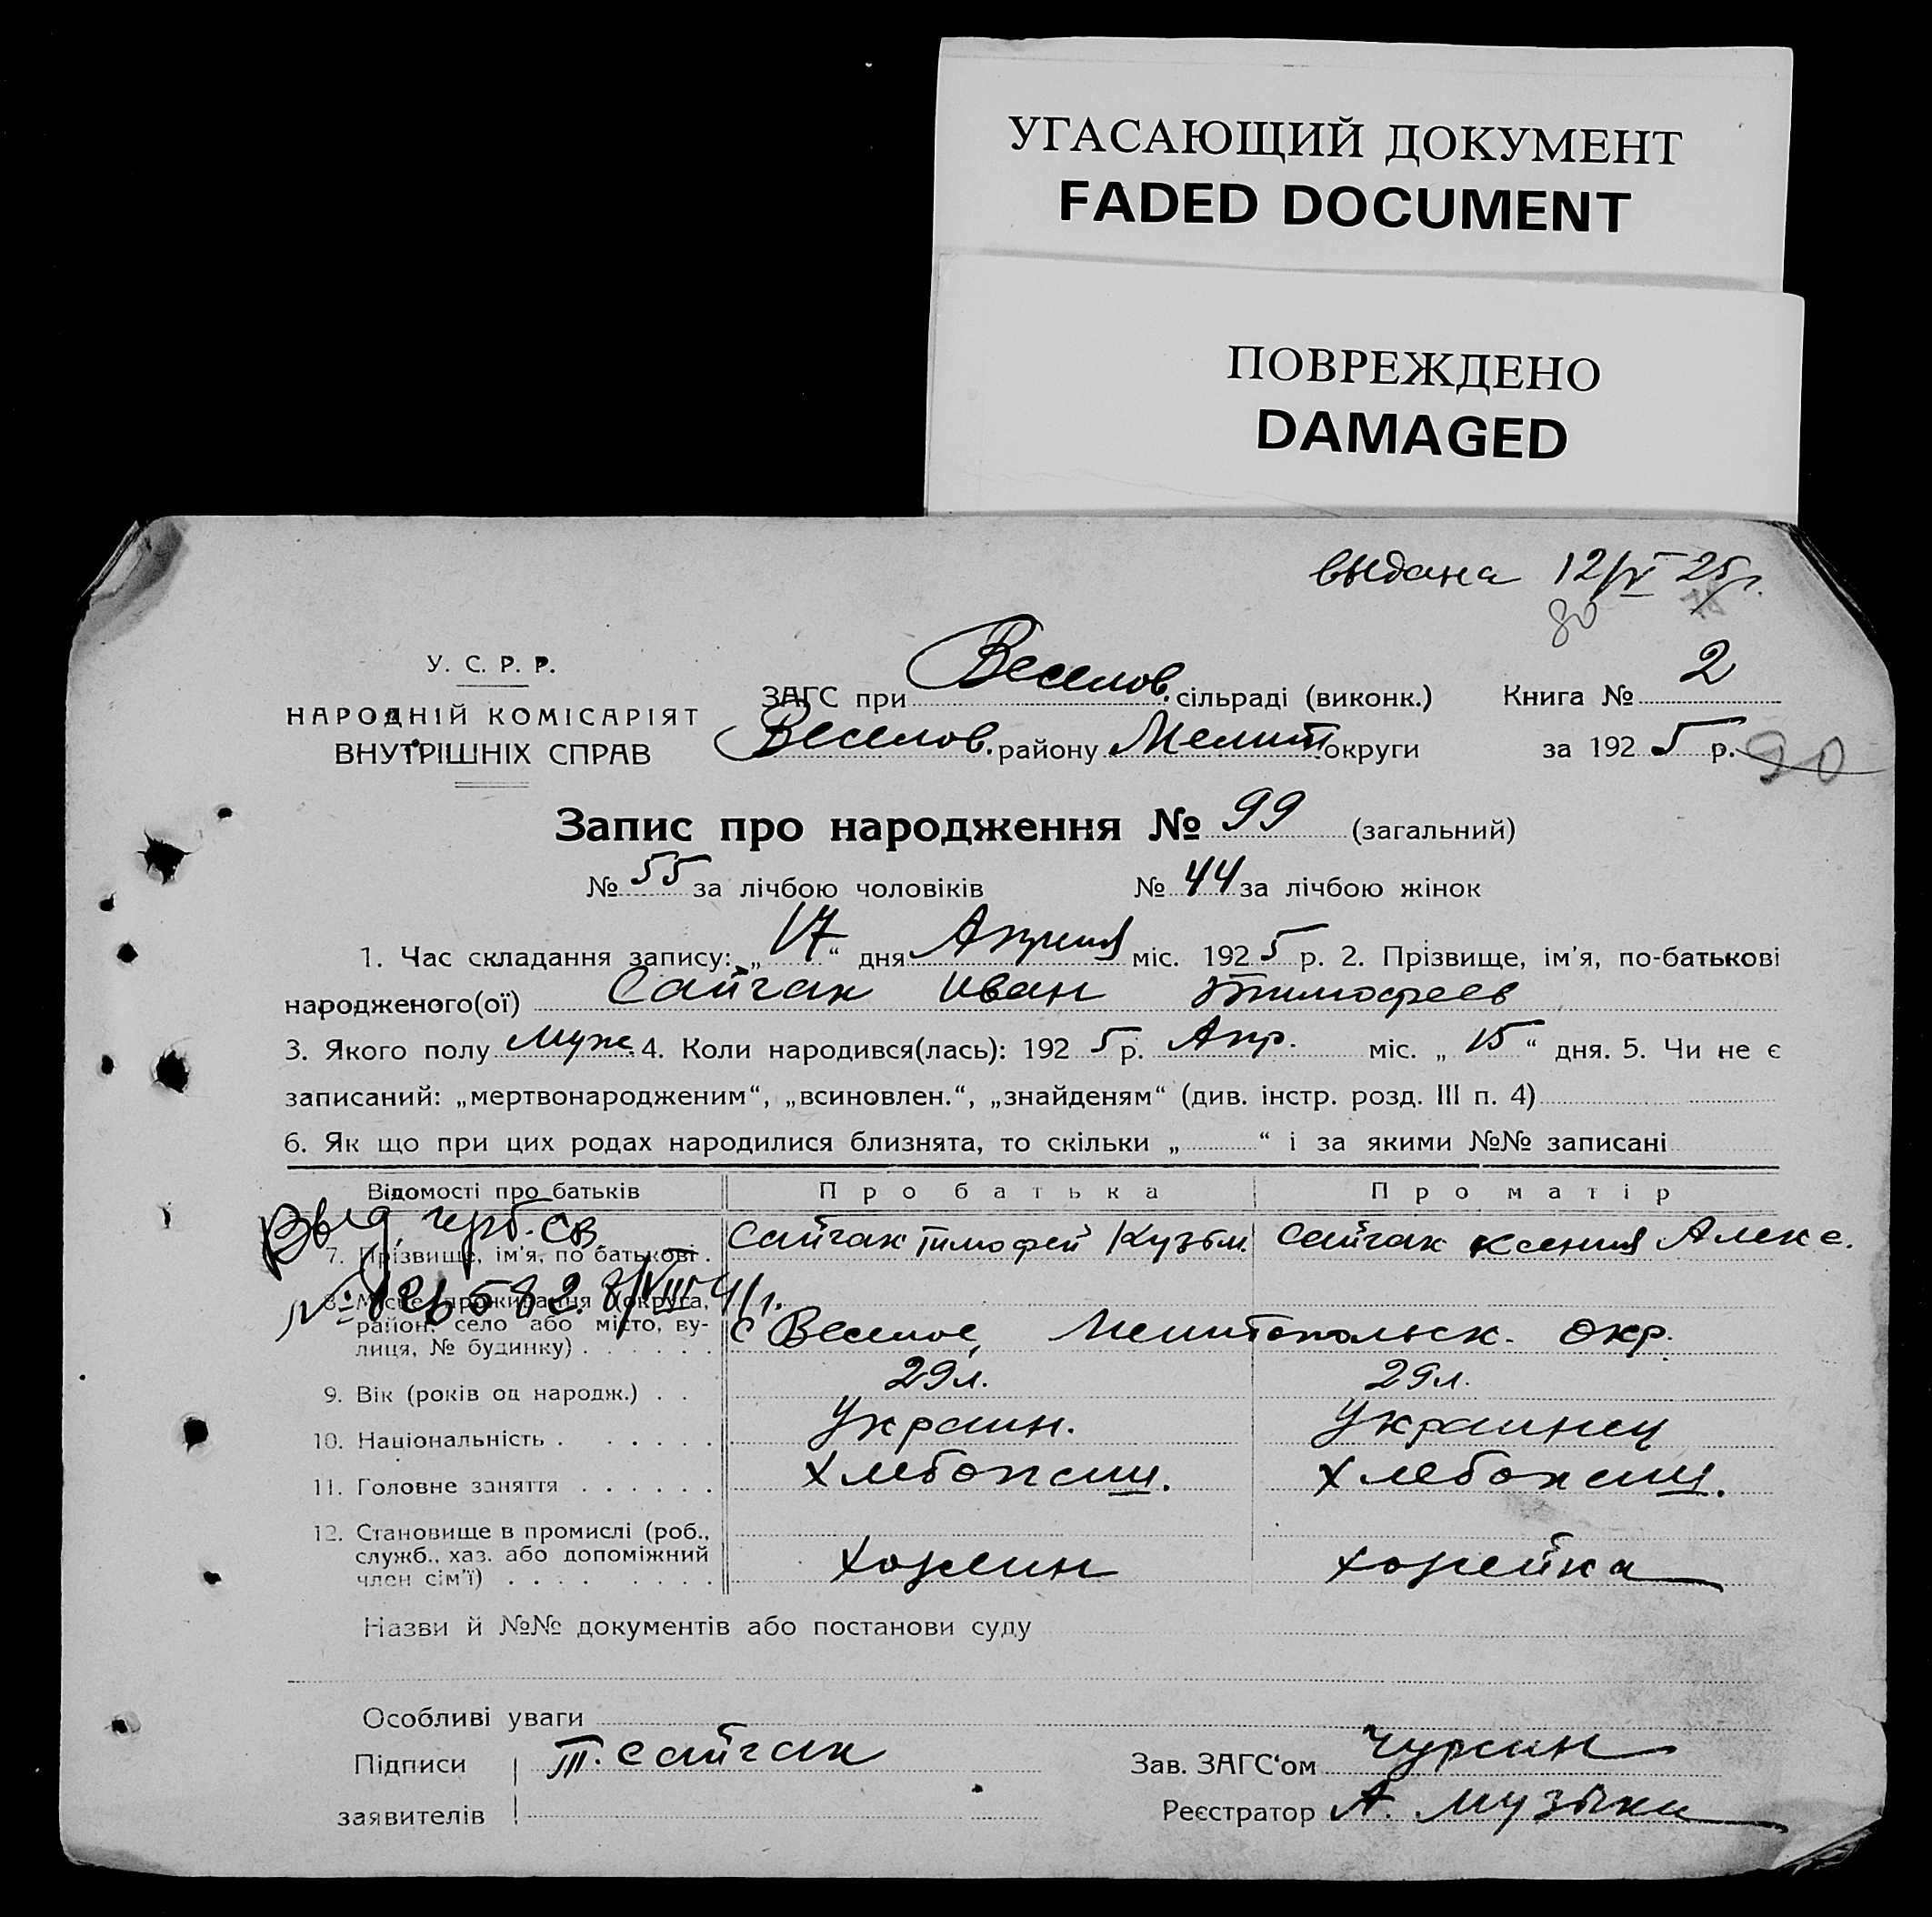 УГАСАЮЩИЙ ДОКУМЕНТ
FADED DOCUMENT
ПОВРЕЖДЕНО
DAMAGED
выдана 12/V 25 г.
80
У. С. Р. Р.
НАРОДНІЙ КОМІСАРІЯТ
ВНУТРІШНІХ СПРАВ
ЗАГС при Веселов. сільраді (виконк.) Книга № 2
Веселов. району Мелит округи за 1925 р. 90
Запис про народження № 99 (загальний)
№ 55 за лічбою чоловіків № 44 за лічбою жінок
1. Час складання запису: „17“ дня Апреля міс. 1925 р. 2. Прізвище, ім’я, по-батькові
народженого(ої) Сайгак Иван Тимофеев
3. Якого полу муж. 4. Коли народився(лась): 1925 р. Апр. міс. „15“ дня. 5. Чи не є
записаний: „мертвонародженим“, „всиновлен.“, „знайденям“ (див. інстр. розд. III п. 4)
6. Як що при цих родах народилися близнята, то скільки „ “ і за якими №№ записані
Відомості про батьків Про батька Про матір
Выд. герб. св.
7. Прізвище, ім’я, по батькові . Сайгак Тимофей Кузьм. Сайгак Ксения Алекс.
8/VIII 41 г.
8. Місце проживання (округа,
район, село або місто, ву-
лиця, № будинку) . . . . . . с Веселое, Мелитопольск. окр.
9. Вік (років од народж.) . . 29 л. 29 л.
10. Національність . . . . . . Украин. Украинец
11. Головне заняття . . . . . . Хлебопаш. Хлебопаш.
12. Становище в промислі (роб.,
служб., хаз. або допоміжний
член сім’ї) . . . . . . . . хозяин хозяйка
Назви й №№ документів або постанови суду
Особливі уваги
Підписи Т. Сайгак Зав. ЗАГС‘ом Чурсин
заявителів Реєстратор А. Музыка